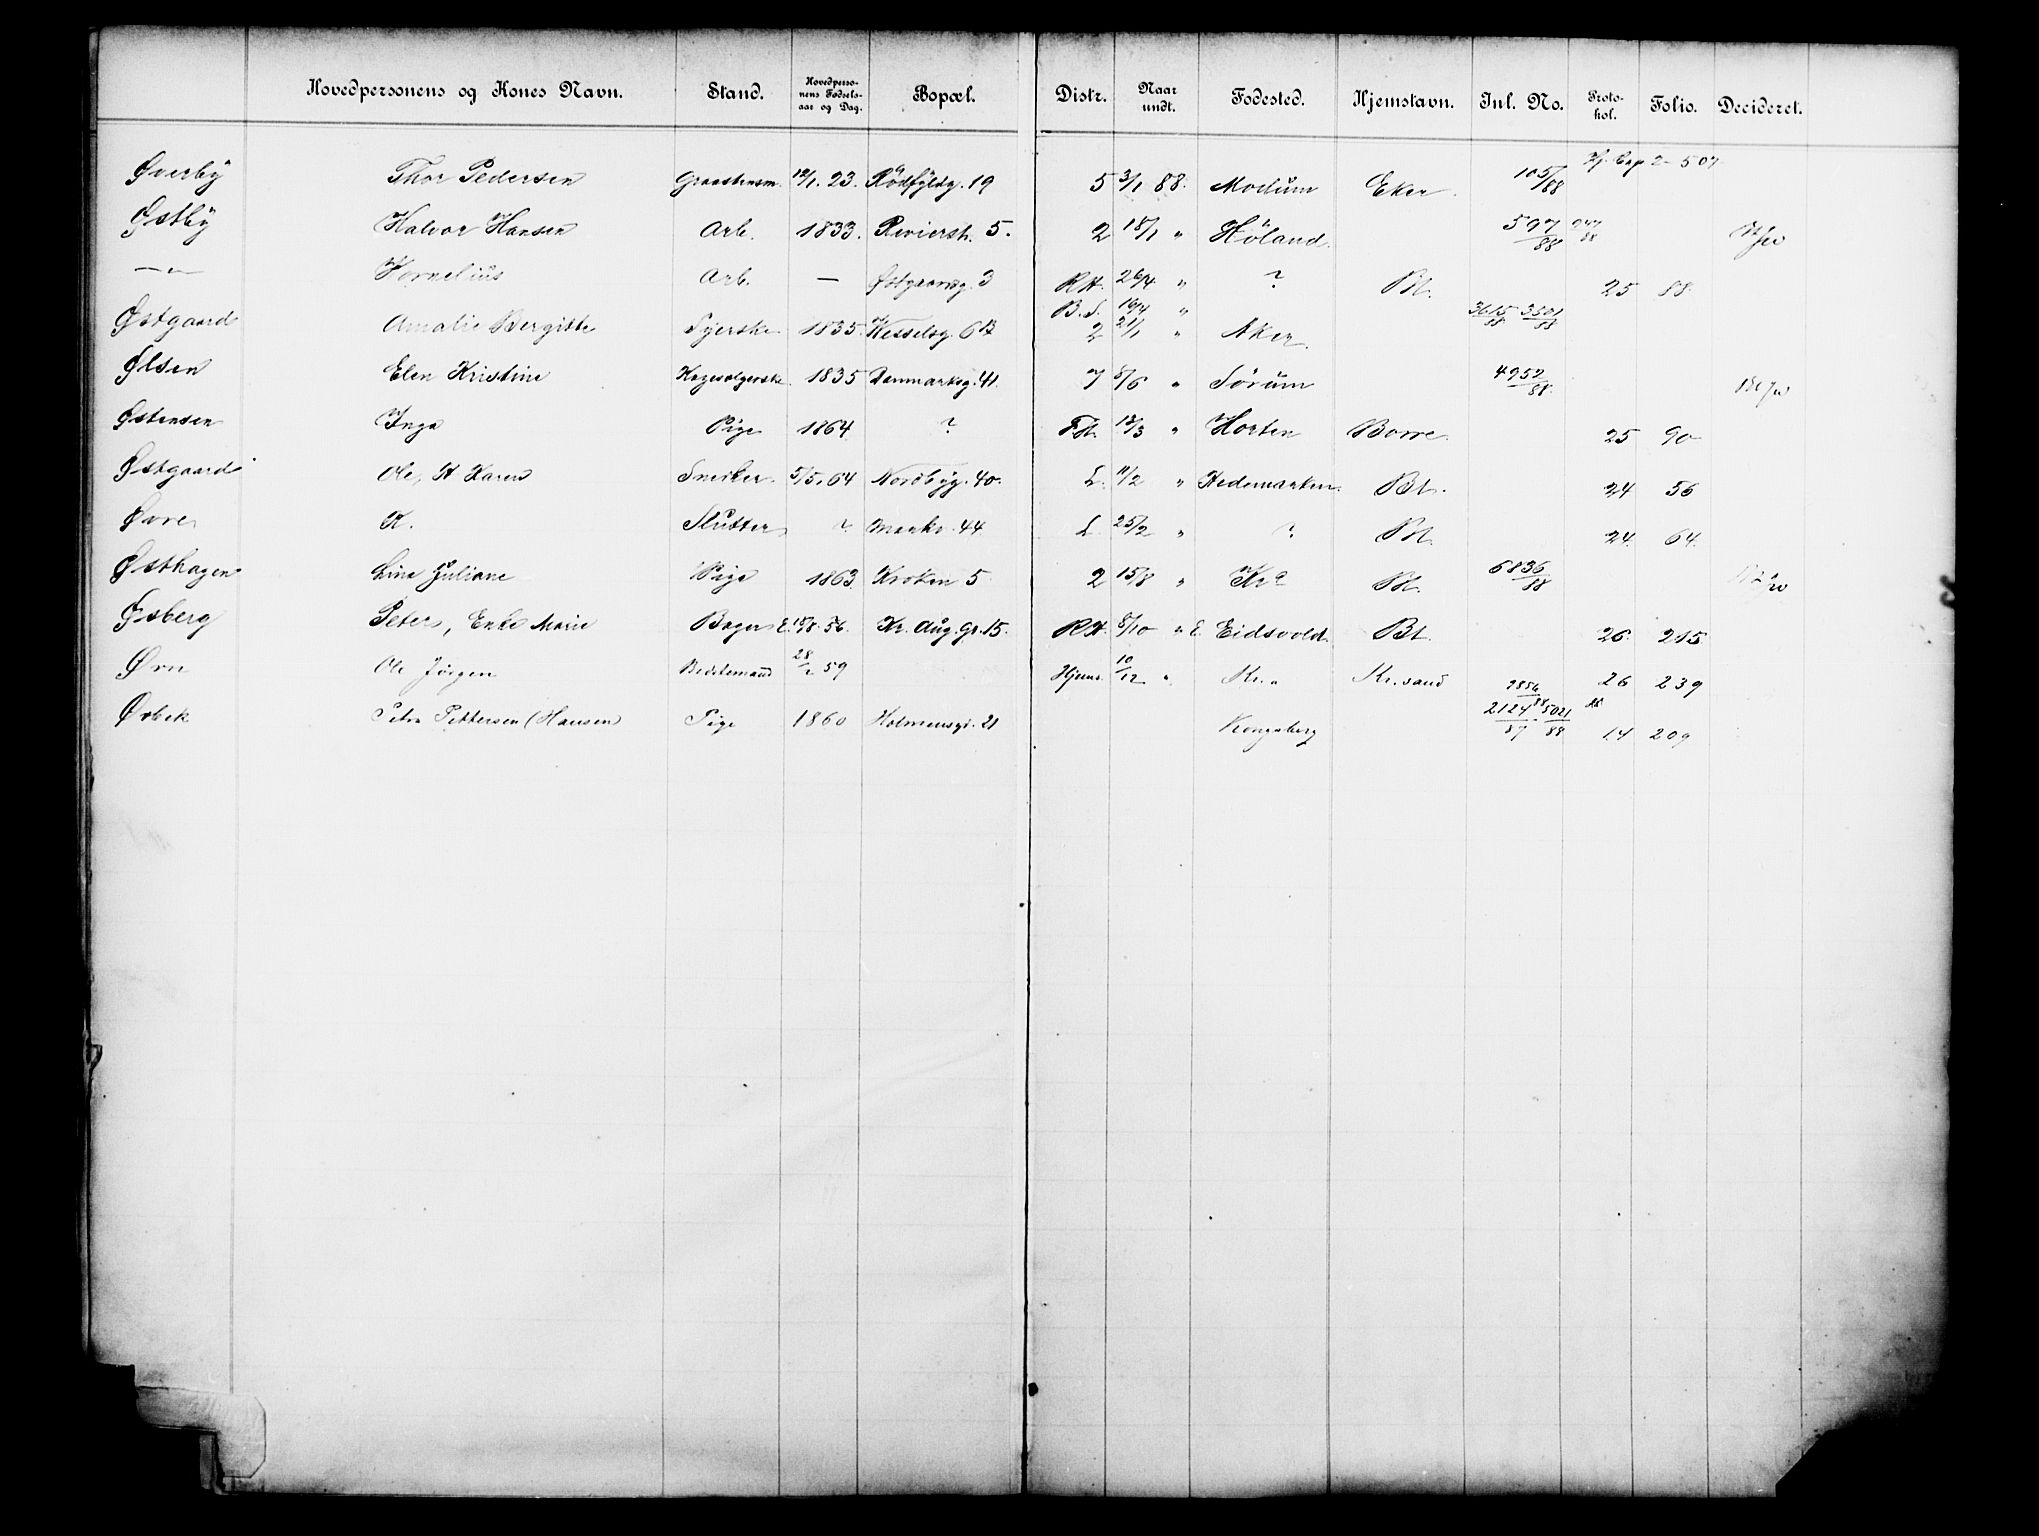 Hovedpersonens og Kones Navn. Stand. Hovedperso-nens Fødsels-aar og Dag. Bopæl. Distr. Naar undt. Fødested. Hjemstavn. Jnl. No. Proto-kol. Folio. Decideret.
Øverby Thor Pedersen Graastensm. 12/1. 23. Rödfyldg. 19 5 3/1 88. Modum Eker. 105/88 2-507
Østby Halvor Hansen Arb. 1833. Revierst. 5. 2 18/1 " Höland. 597/88 947/88
—"— Kornelius Arb. — Østgaardsg. 3 RH. 26/4 " ? Bt. 25 88
Østgaard Amalie Bergitte Syerske 1835 Wesselsg. 6B B.S. 16/4 " 2 21/1 " Aker. 3615/88 3501/88
Ølsen Elen Kristine Kagesælgerske 1835 Danmarksg. 41. 7 8/6 " Sørum 4952/88
Østensen Inga Pige 1864 ? FH. 13/3 " Horten Borre. 25 90
Østgaard Ole, H Karen Snedker 5/5. 64 Nordbyg. 40. L. 11/2 " Hedemarken. Bt. 24 56
Øvre K. Slutter ? Markv. 44 L. 25/2 " ? Bt. 24. 64.
Østhagen Lina Juliane Pige 1863 Kroken 5 2 15/8 " Kra Bt. 6836/88
Øsberg Peter, Enke Marie Bager E. 15/8. 56. Kr. Aug. Gr. 15. RH. 8/10 " E Eidsvold. Bt. 26. 215
Ørn Ole Jørgen Bestemand 28/2 59 Hjems. 10/12 " Kr. " Kr.sand 26 239
Ørbek Petra Pettersen (Hansen) Pige 1860 Holmensgt. 21 Kongsberg 2856/88 2124/87 5021/88 14 209